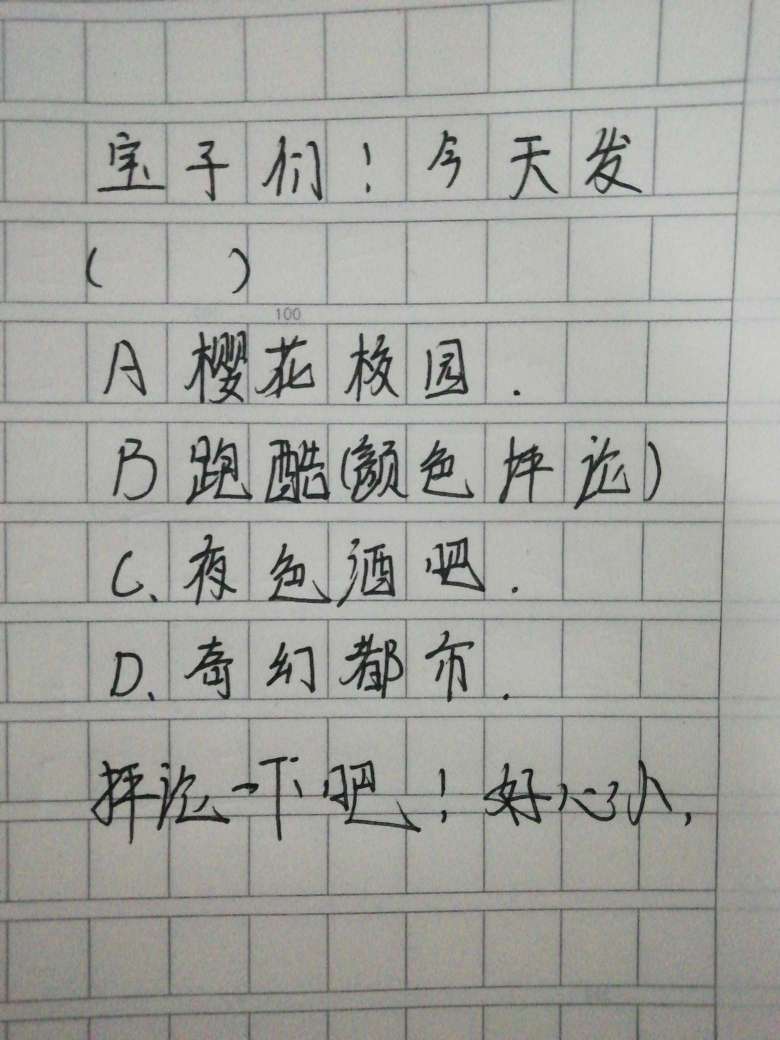 宝子们！今天发
（ ）
100
A 樱花校园.
B 跑酷(颜色抨论)
C、夜色酒吧.
D、奇幻都市.
抨论一下吧！好心人,